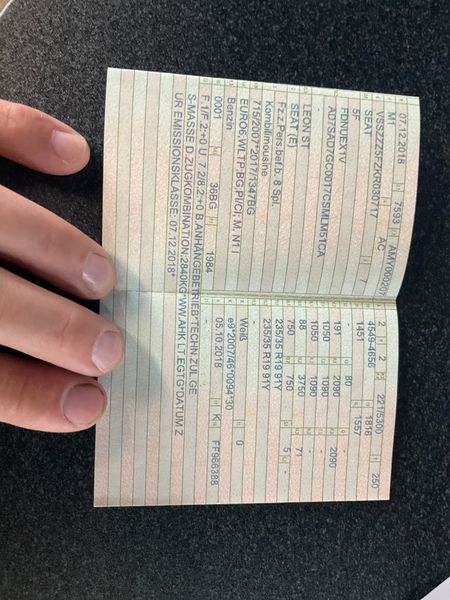 07.12.2018 7593
M1 AC
SEAT 7
5F
FDNUEX1V
-
LEON ST
SEAT (E)
Fz.z.Pers.bef.b. 8 Spl.
Kombilimousine
715/2007*2017/1347BG
EURO6;WLTP;BG;PI/CI; M, N1 I
Benzin
0001 36BG 1984
F 1/F.2:+0 U. 7.2/8.2:+0 B.ANHÄNGEBETRIEB*TECHN.ZUL.GE
S-MASSE D.ZUGKOMBINATION:2840KG*WW.AHK LT.EGTG*DATUM Z
UR EMISSIONSKLASSE: 07.12.2018*
2 2 221/5300 250
4549-4656 1816
1451 1557
- 80
191 2090 2090
1050 1090 -
1050 1090 -
88 3750 71
750 750 5 -
235/35 R19 91Y
235/35 R19 91Y
-
Weiß 0
e9*2007/46*0094*30
05.10.2018 K FF966388
- -